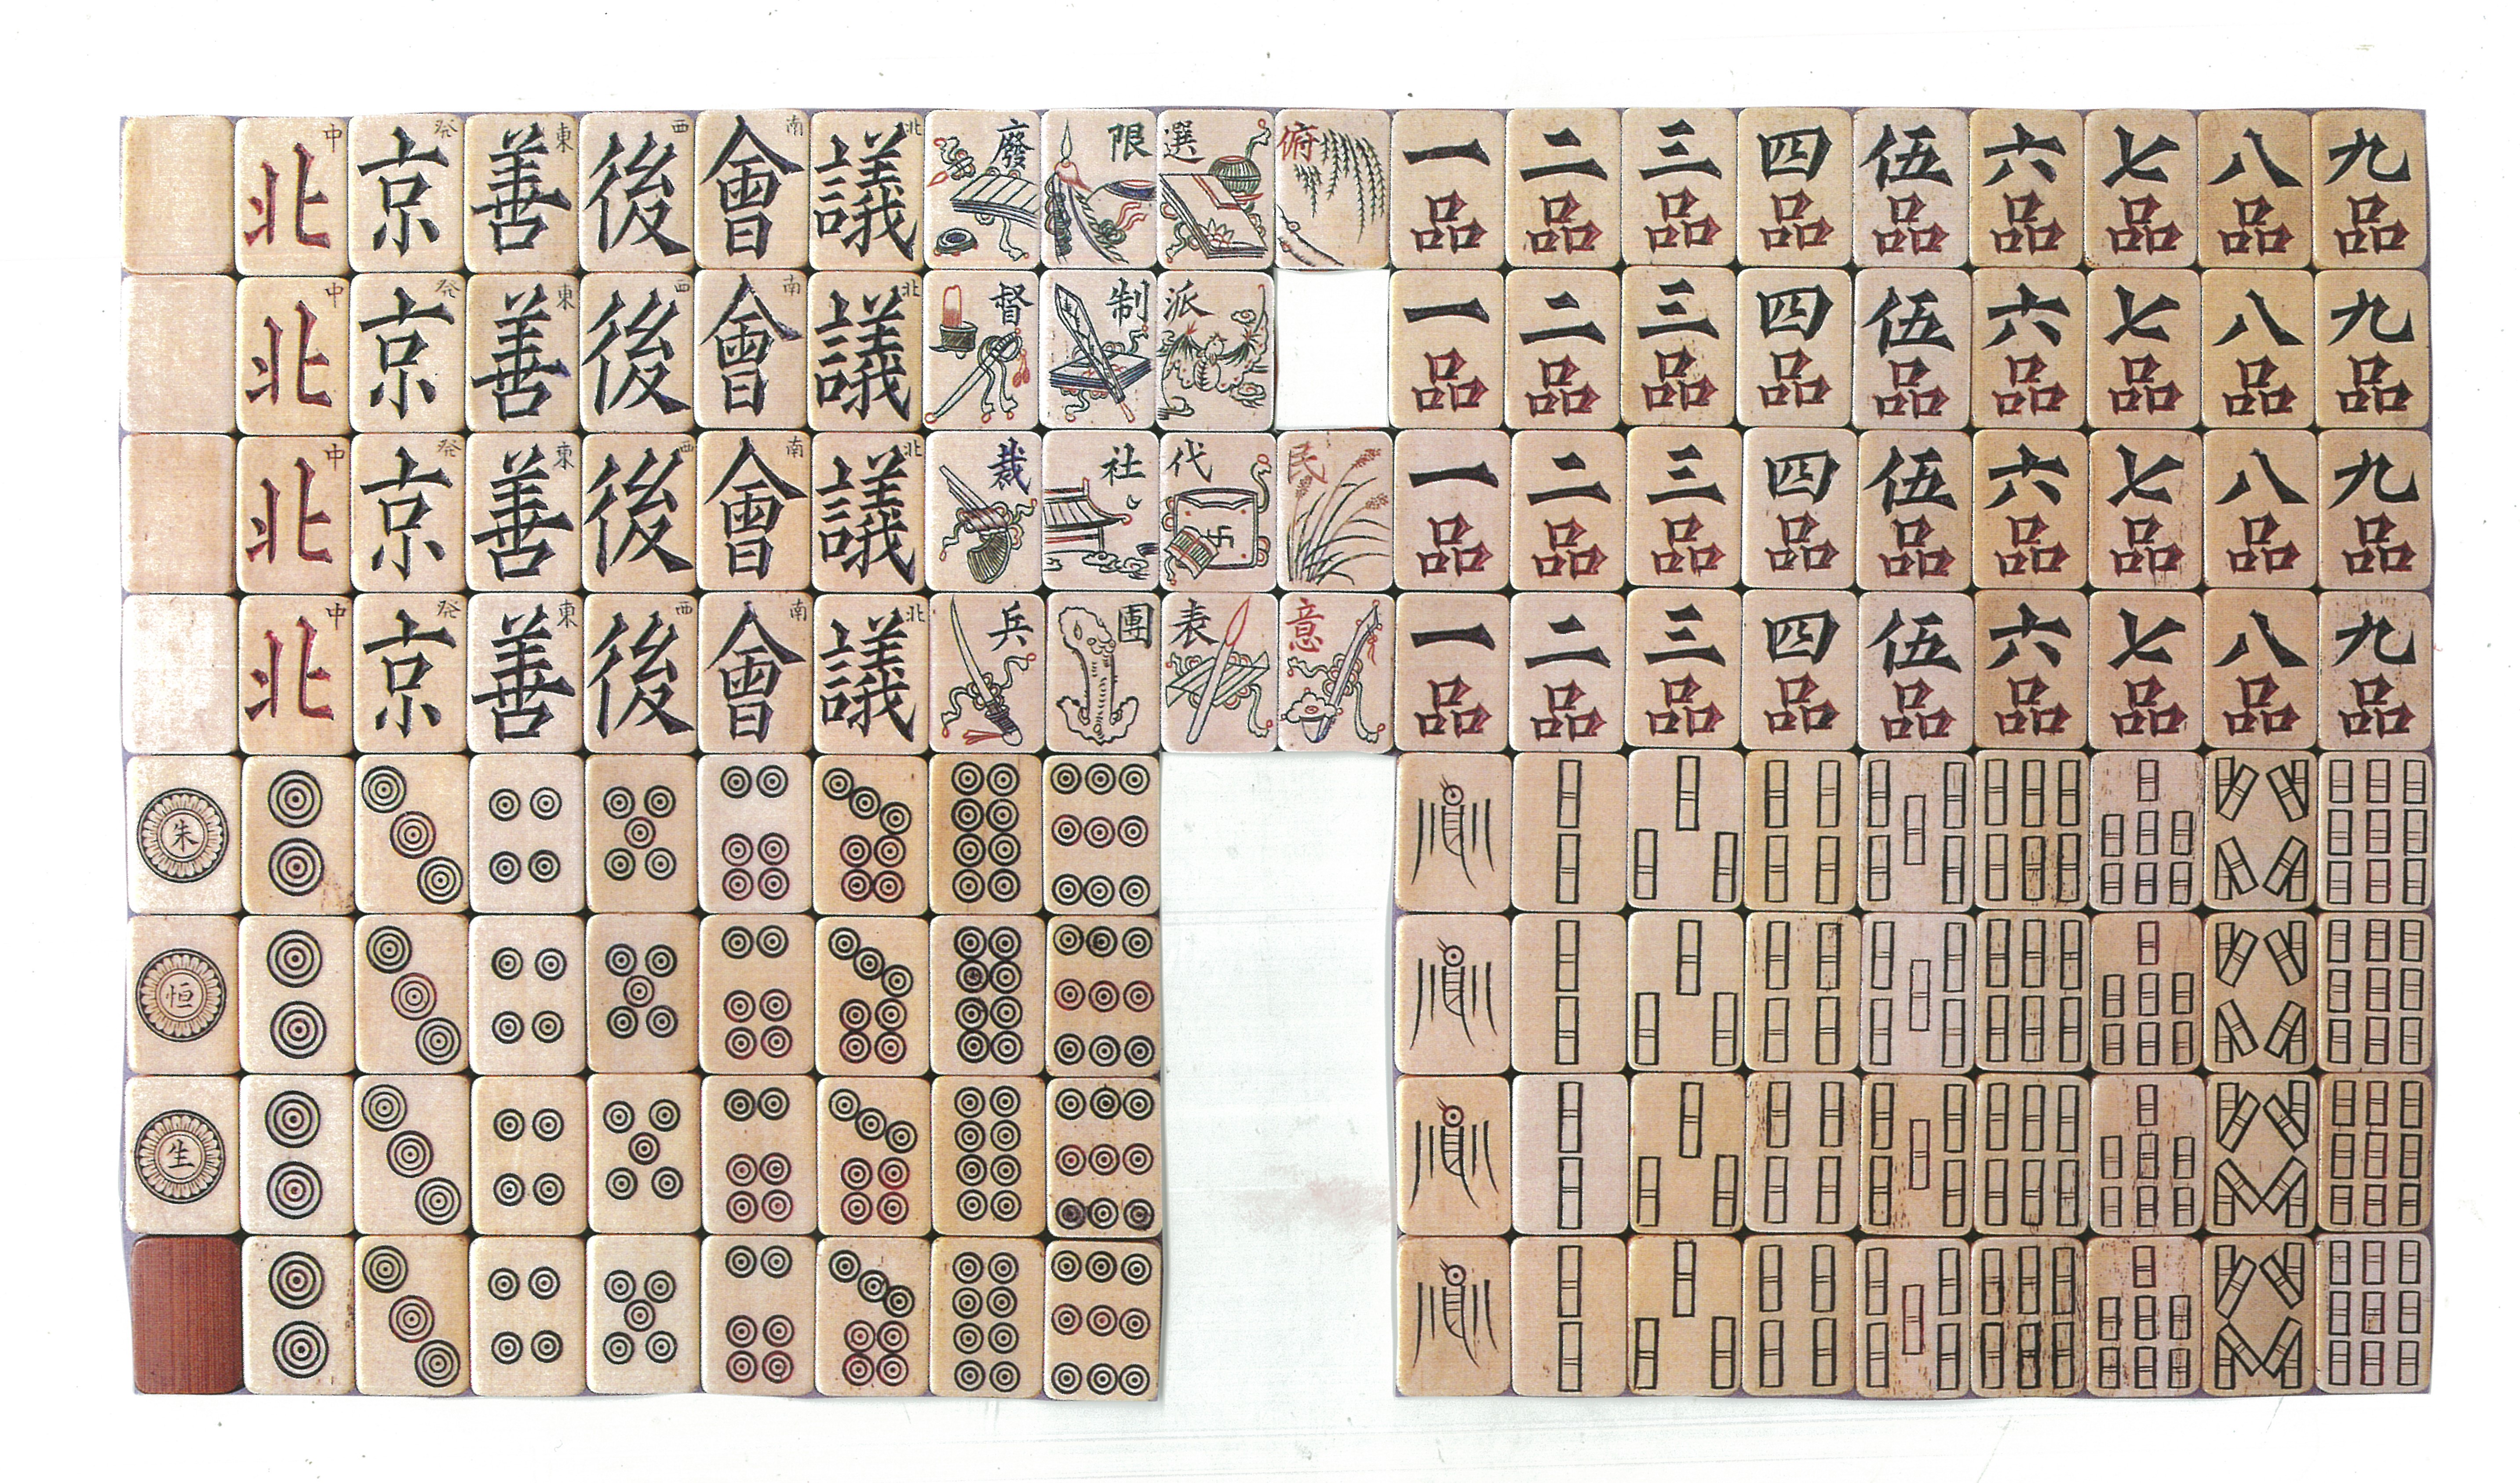 中 発 東 西 南 北
北 京 善 後 會 議 廢 限 選 俯 一 二 三 四 伍 六 七 八 九
品 品 品 品 品 品 品 品 品
中 発 東 西 南 北
北 京 善 後 會 議 督 制 派 一 二 三 四 伍 六 七 八 九
品 品 品 品 品 品 品 品 品
中 発 東 西 南 北
北 京 善 後 會 議 裁 社 代 民 一 二 三 四 伍 六 七 八 九
品 品 品 品 品 品 品 品 品
中 発 東 西 南 北
北 京 善 後 會 議 兵 團 表 意 一 二 三 四 伍 六 七 八 九
品 品 品 品 品 品 品 品 品
朱
恒
生